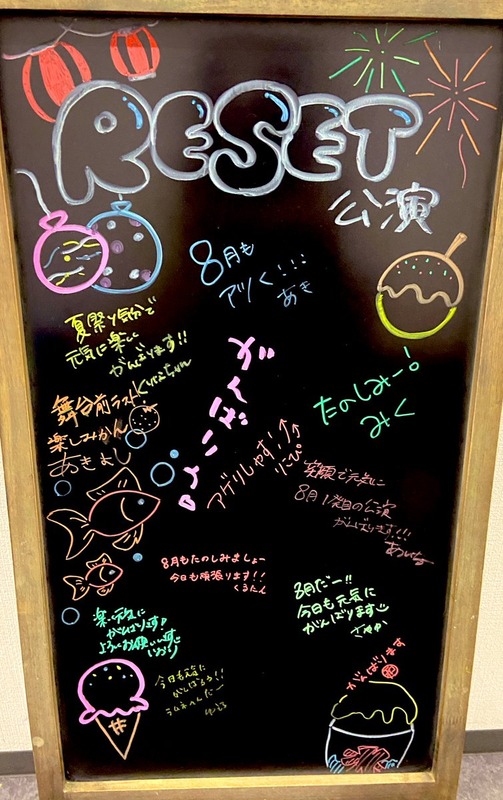 RESET
公演
8月も
アツく!!!
あき
夏祭り気分で
元気に楽しく
がんばります!!
舞台前ラスト
楽しみかん
あきよし
たのしみー!
みく
アゲリしゃす!
笑顔で元気に
8月1発目の公演
がんばります!!!
8月もたのしみましょー
今日も頑張ります!!
くるたん
8月だー!!
今日も元気に
がんばります
さやか
楽しく元気に
がんばります!
よろしくお願いします
今日も元気に
がんばろう!!
ラムネへんだー
がんばります